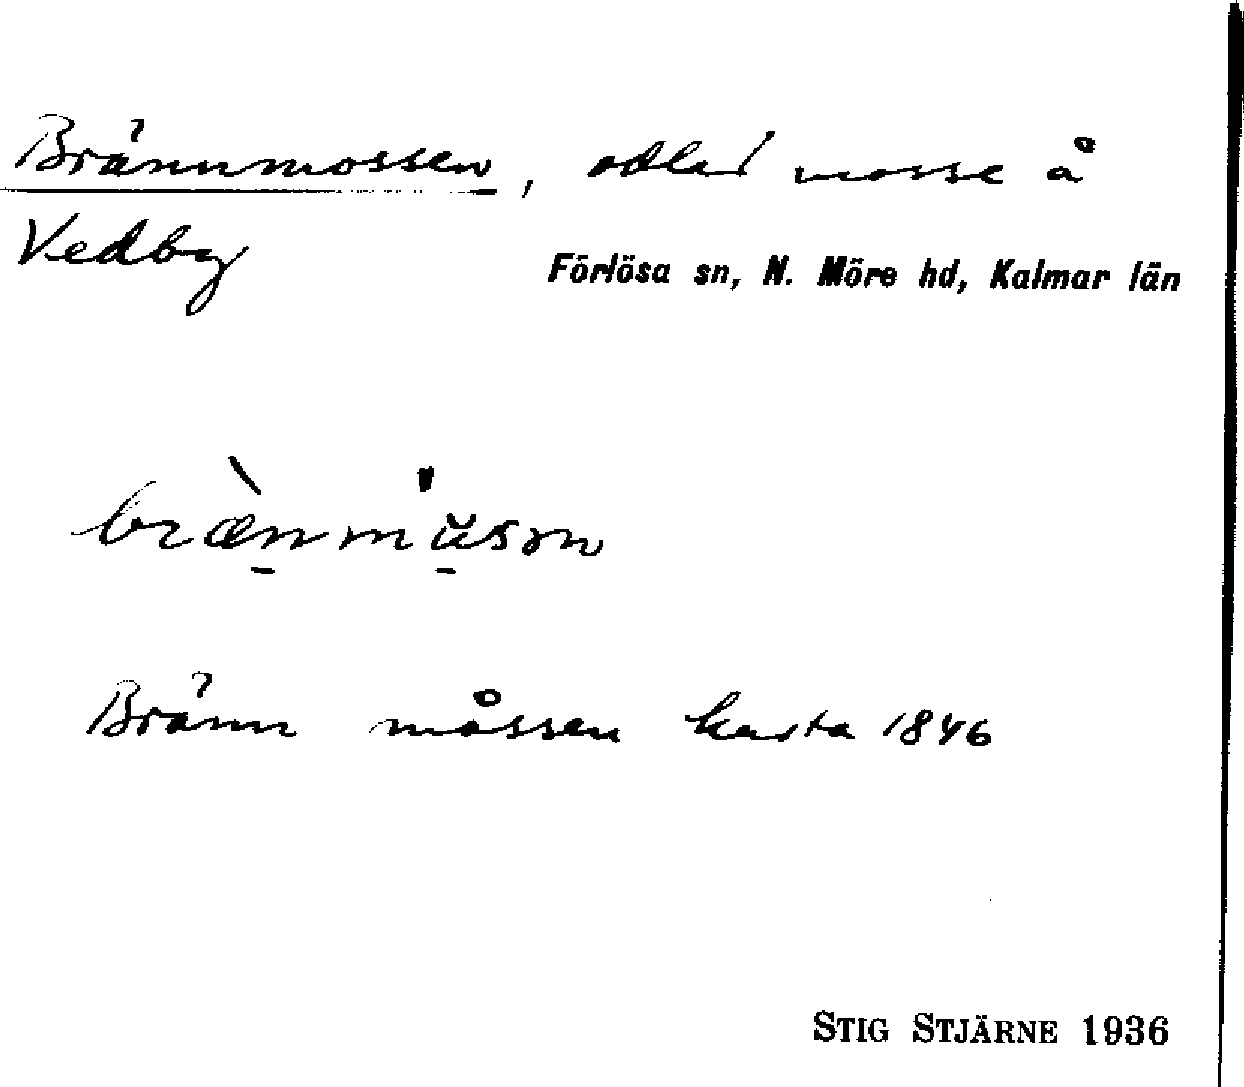 Brännmossen, odlad mosse å
Vedby
Förlösa sn, N. Möre hd, Kalmar län
Bränn måssen karta 1846
STIG STJÄRNE 1936